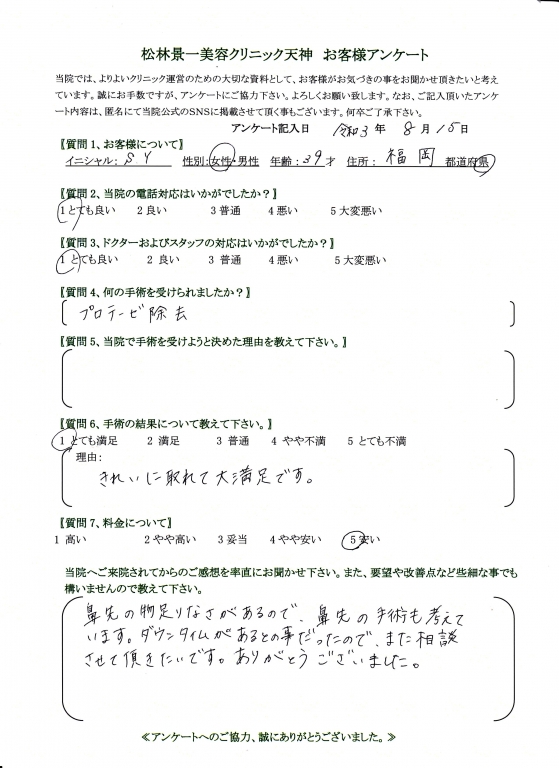 松林景一美容クリニック天神 お客様アンケート
当院では、よりよいクリニック運営のための大切な資料として、お客様がお気づきの事をお聞かせ頂きたいと考え
ています。誠にお手数ですが、アンケートにご協力下さい。よろしくお願い致します。なお、ご記入頂いたアンケ
ート内容は、匿名にて当院公式のSNSに掲載させて頂く事もございます。何卒ご了承下さい。
アンケート記入日 令和3年 8月 15日
【質問1、お客様について】
イニシャル: S Y 性別:女性・男性 年齢:39才 住所: 福岡 都道府県
【質問2、当院の電話対応はいかがでしたか?】
1とても良い 2 良い 3 普通 4 悪い 5 大変悪い
【質問3、ドクターおよびスタッフの対応はいかがでしたか?】
1 とても良い 2 良い 3 普通 4 悪い 5 大変悪い
【質問4、何の手術を受けられましたか?】
プロテーゼ除去
【質問5、当院で手術を受けようと決めた理由を教えて下さい。】
【質問6、手術の結果について教えて下さい。】
1 とても満足 2 満足 3 普通 4 やや不満 5 とても不満
理由:
きれいに取れて大満足です。
【質問7、料金について】
1 高い 2 やや高い 3 妥当 4 やや安い 5 安い
当院へご来院されてからのご感想を率直にお聞かせ下さい。また、要望や改善点など些細な事でも
構いませんので教えて下さい。
鼻先の物足りなさがあるので、鼻先の手術も考えて
います。ダウンタイムがあるとの事だったので、また相談
させて頂きたいです。ありがとうございました。
≪アンケートへのご協力、誠にありがとうございました。≫